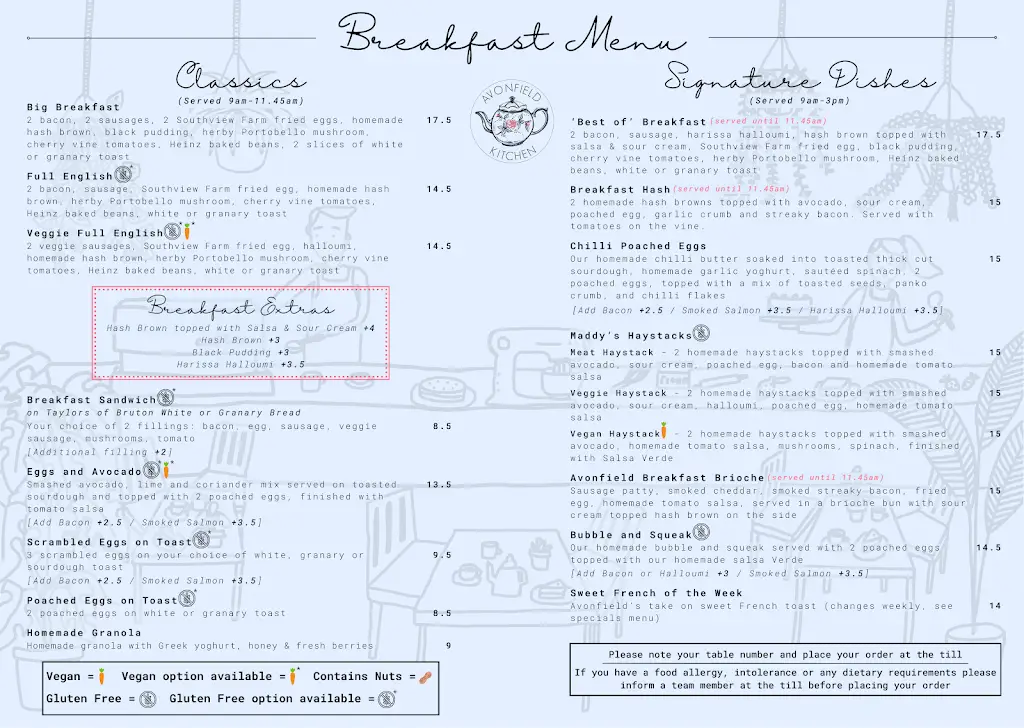 Breakfast Menu
Classics
(Served 9am-11.45am)
Big Breakfast
2 bacon, 2 sausages, 2 Southview Farm fried eggs, homemade 17.5
hash brown, black pudding, herby Portobello mushroom,
cherry vine tomatoes, Heinz baked beans, 2 slices of white
or granary toast
Full English
2 bacon, sausage, Southview Farm fried egg, homemade hash 14.5
brown, herby Portobello mushroom, cherry vine tomatoes,
Heinz baked beans, white or granary toast
Veggie Full English
2 veggie sausages, Southview Farm fried egg, halloumi, 14.5
homemade hash brown, herby Portobello mushroom, cherry vine
tomatoes, Heinz baked beans, white or granary toast
Breakfast Extras
Hash Brown topped with Salsa & Sour Cream +4
Hash Brown +3
Black Pudding +3
Harissa Halloumi +3.5
Breakfast Sandwich
on Taylors of Bruton White or Granary Bread
Your choice of 2 fillings: bacon, egg, sausage, veggie 8.5
sausage, mushrooms, tomato
[Additional filling +2]
Eggs and Avocado
Smashed avocado, lime and coriander mix served on toasted 13.5
sourdough and topped with 2 poached eggs, finished with
tomato salsa
[Add Bacon +2.5 / Smoked Salmon +3.5]
Scrambled Eggs on Toast
3 scrambled eggs on your choice of white, granary or 9.5
sourdough toast
[Add Bacon +2.5 / Smoked Salmon +3.5]
Poached Eggs on Toast
2 poached eggs on white or granary toast 8.5
Homemade Granola
Homemade granola with Greek yoghurt, honey & fresh berries 9
Vegan = Vegan option available = * Contains Nuts =
Gluten Free = Gluten Free option available = *
AVONFIELD
KITCHEN
Signature Dishes
(Served 9am-3pm)
'Best of' Breakfast (served until 11.45am)
2 bacon, sausage, harissa halloumi, hash brown topped with 17.5
salsa & sour cream, Southview Farm fried egg, black pudding,
cherry vine tomatoes, herby Portobello mushroom, Heinz baked
beans, white or granary toast
Breakfast Hash (served until 11.45am)
2 homemade hash browns topped with avocado, sour cream, 15
poached egg, garlic crumb and streaky bacon. Served with
tomatoes on the vine.
Chilli Poached Eggs
Our homemade chilli butter soaked into toasted thick cut 15
sourdough, homemade garlic yoghurt, sautéed spinach, 2
poached eggs, topped with a mix of toasted seeds, panko
crumb, and chilli flakes
[Add Bacon +2.5 / Smoked Salmon +3.5 / Harissa Halloumi +3.5]
Maddy's Haystacks
Meat Haystack - 2 homemade haystacks topped with smashed 15
avocado, sour cream, poached egg, bacon and homemade tomato
salsa
Veggie Haystack - 2 homemade haystacks topped with smashed 15
avocado, sour cream, halloumi, poached egg, homemade tomato
salsa
Vegan Haystack - 2 homemade haystacks topped with smashed 15
avocado, homemade tomato salsa, mushrooms, spinach, finished
with Salsa Verde
Avonfield Breakfast Brioche (served until 11.45am)
Sausage patty, smoked cheddar, smoked streaky bacon, fried 15
egg, homemade tomato salsa, served in a brioche bun with sour
cream topped hash brown on the side
Bubble and Squeak
Our homemade bubble and squeak served with 2 poached eggs 14.5
topped with our homemade salsa Verde
[Add Bacon or Halloumi +3 / Smoked Salmon +3.5]
Sweet French of the Week
Avonfield's take on sweet French toast (changes weekly, see 14
specials menu)
Please note your table number and place your order at the till
If you have a food allergy, intolerance or any dietary requirements please
inform a team member at the till before placing your order